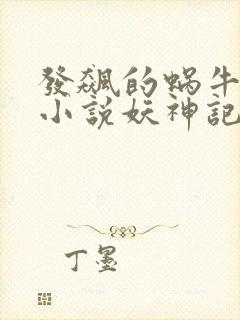 發飆的蝸牛
小說妖神記
丁墨